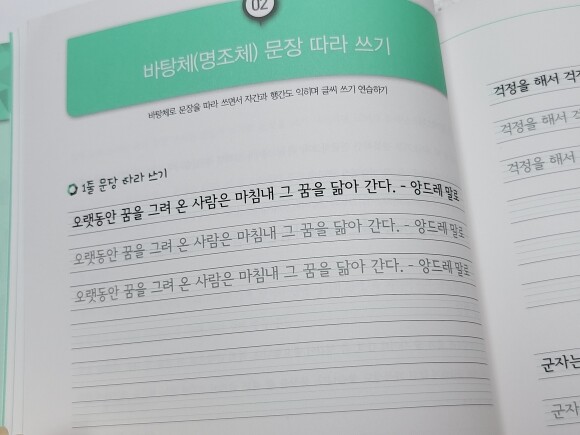 02
바탕체(명조체) 문장 따라 쓰기
바탕체로 문장을 따라 쓰면서 자간과 행간도 익히며 글씨 쓰기 연습하기
오랫동안 꿈을 그려 온 사람은 마침내 그 꿈을 닮아 간다. - 앙드레 말로
오랫동안 꿈을 그려 온 사람은 마침내 그 꿈을 닮아 간다. - 앙드레 말로
오랫동안 꿈을 그려 온 사람은 마침내 그 꿈을 닮아 간다. - 앙드레 말로
걱정을 해서 걱정
걱정을 해서
걱정을 해서
군자는
군자